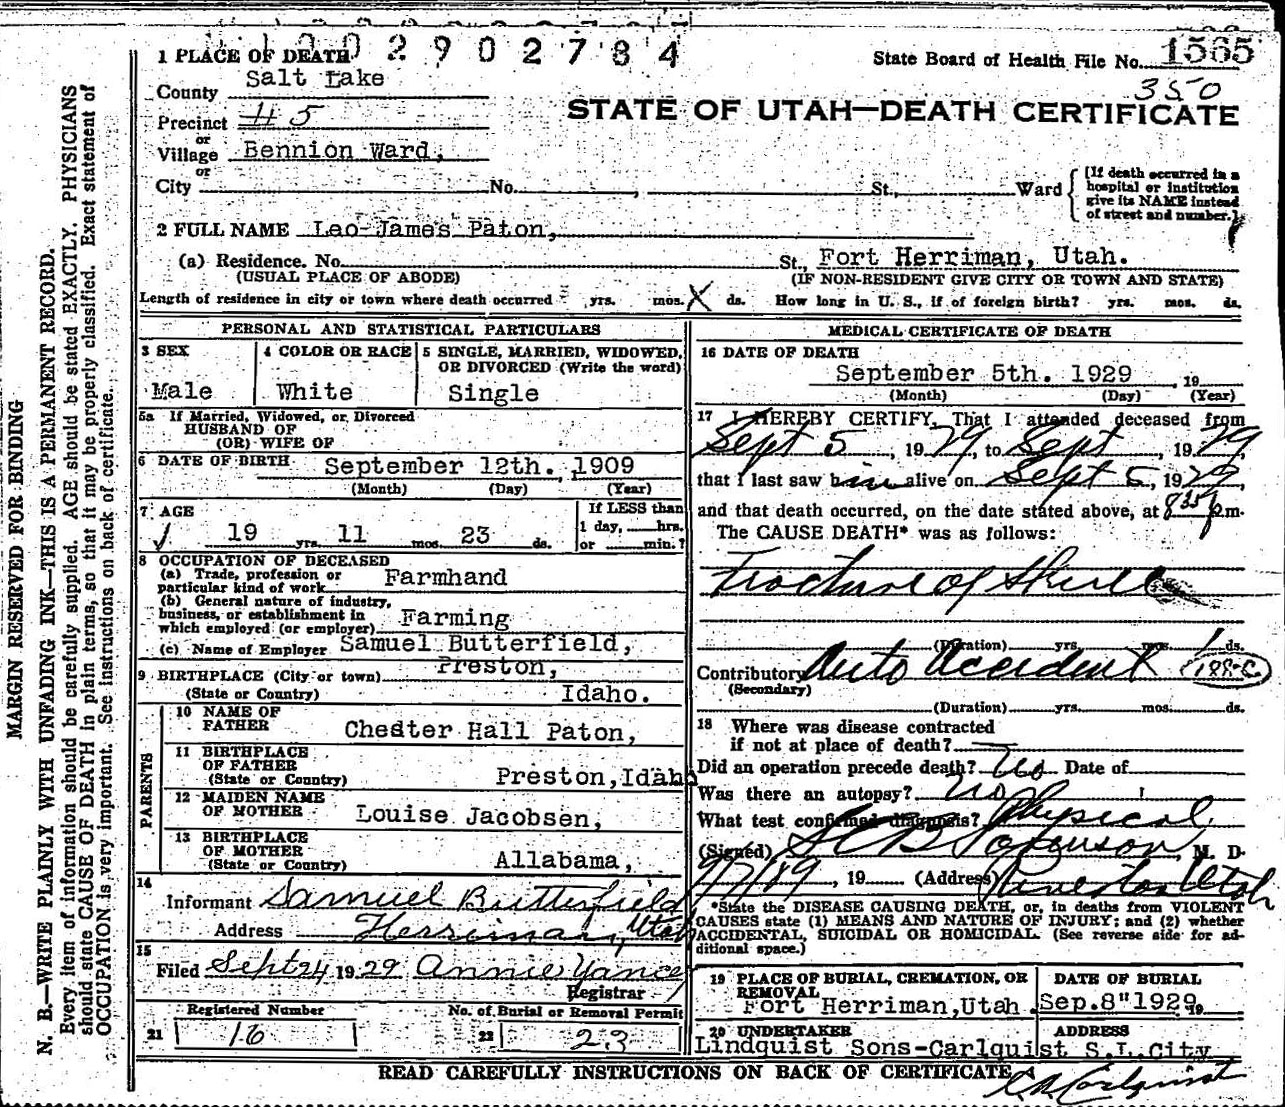 2 9 0 2 7 8 4
1 PLACE OF DEATH
State Board of Health File No. 1565
350
County Salt Lake
STATE OF UTAH—DEATH CERTIFICATE
Precinct 45
or
Village Bennion Ward,
or
City No. St., Ward
[If death occurred in a
hospital or institution
give its NAME instead
of street and number.]
2 FULL NAME Leo James Paton,
(a) Residence. No. St., Fort Herriman, Utah.
(USUAL PLACE OF ABODE) (IF NON-RESIDENT GIVE CITY OR TOWN AND STATE)
Length of residence in city or town where death occurred yrs. mos. X ds. How long in U. S., if of foreign birth? yrs. mos. ds.
PERSONAL AND STATISTICAL PARTICULARS
3 SEX
Male
4 COLOR OR RACE
White
5 SINGLE, MARRIED, WIDOWED,
OR DIVORCED (Write the word)
Single
5a If Married, Widowed, or Divorced
HUSBAND OF
(OR) WIFE OF
6 DATE OF BIRTH September 12th. 1909
(Month) (Day) (Year)
7 AGE
19 yrs. 11 mos. 23 ds.
If LESS than
1 day, hrs.
or min.?
8 OCCUPATION OF DECEASED
(a) Trade, profession or
particular kind of work Farmhand
(b) General nature of industry,
business, or establishment in
which employed (or employer) Farming
(c) Name of Employer Samuel Butterfield,
9 BIRTHPLACE (City or town) Preston,
(State or Country) Idaho.
PARENTS
10 NAME OF
FATHER Chester Hall Paton,
11 BIRTHPLACE
OF FATHER
(State or Country) Preston, Idaho
12 MAIDEN NAME
OF MOTHER Louise Jacobsen,
13 BIRTHPLACE
OF MOTHER
(State or Country) Allabama,
14
Informant Samuel Butterfield
Address Herriman, Utah
15
Filed Sept 24 1929 Annie Yance
Registrar
Registered Number No. of Burial or Removal Permit
21 16 22 23
MEDICAL CERTIFICATE OF DEATH
16 DATE OF DEATH
September 5th. 1929, 19
(Month) (Day) (Year)
17 I HEREBY CERTIFY, That I attended deceased from
Sept 5, 1929, to Sept, 1929,
that I last saw him alive on Sept 5, 1929,
and that death occurred, on the date stated above, at 8 35 p.m.
The CAUSE DEATH* was as follows:
Fracture of Skull
(Duration) yrs. mos. 1 ds.
Contributory Auto Accident 188-C
(Secondary)
(Duration) yrs. mos. ds.
18 Where was disease contracted
if not at place of death?
Did an operation precede death? No Date of
Was there an autopsy? No
What test confirmed diagnosis? Physical
(Signed) Sorenson, M. D.
19 (Address) Riverton Utah
*State the DISEASE CAUSING DEATH, or, in deaths from VIOLENT
CAUSES state (1) MEANS AND NATURE OF INJURY; and (2) whether
ACCIDENTAL, SUICIDAL OR HOMICIDAL. (See reverse side for ad-
ditional space.)
19 PLACE OF BURIAL, CREMATION, OR
REMOVAL
Fort Herriman, Utah.
DATE OF BURIAL
Sep. 8" 1929 19
20 UNDERTAKER ADDRESS
Lindquist Sons-Carlquist S.L.City
READ CAREFULLY INSTRUCTIONS ON BACK OF CERTIFICATE
Carlquist
MARGIN RESERVED FOR BINDING
N. B.—WRITE PLAINLY WITH UNFADING INK—THIS IS A PERMANENT RECORD.
Every item of information should be carefully supplied. AGE should be stated EXACTLY. PHYSICIANS
should state CAUSE OF DEATH in plain terms, so that it may be properly classified. Exact statement of
OCCUPATION is very important. See instructions on back of certificate.